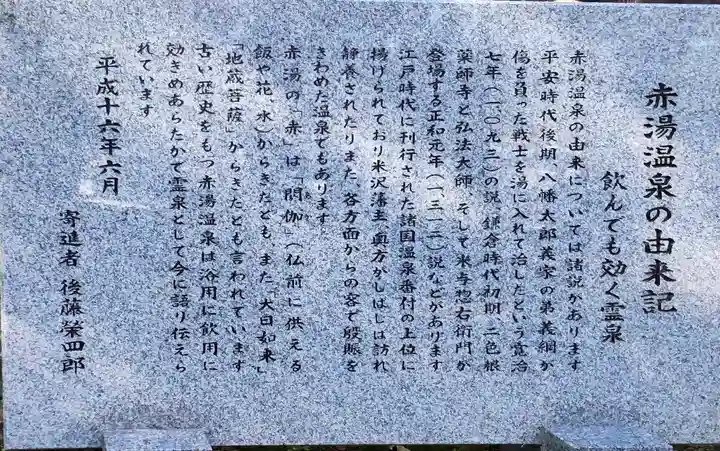 赤湯温泉の由来記
飲んでも効く霊泉
赤湯温泉の由来については諸説があります
平安時代後期、八幡太郎義家の弟義綱が
傷を負った戦士を湯に入れて治したという寛治
七年(一〇九三)の説、鎌倉時代初期、二色根
薬師寺と弘法大師、そして米与惣右衛門が
登場する正和元年(一三一二)説などがあります
江戸時代に刊行された諸国温泉番付の上位に
揚げられており米沢藩主、奥方がしばしば訪れ
静養されたりまた、各方面からの客で殷賑を
きわめた温泉でもあります
赤湯の「赤」は「閼伽」(仏前に供える
飯や花、水)からきたとも、また、大日如来」
「地蔵菩薩」からきたとも言われています
古い歴史をもつ赤湯温泉は浴用に飲用に
効きめあらたかで霊泉として今に語り伝えら
れています
平成十六年六月
寄進者 後藤榮四郎